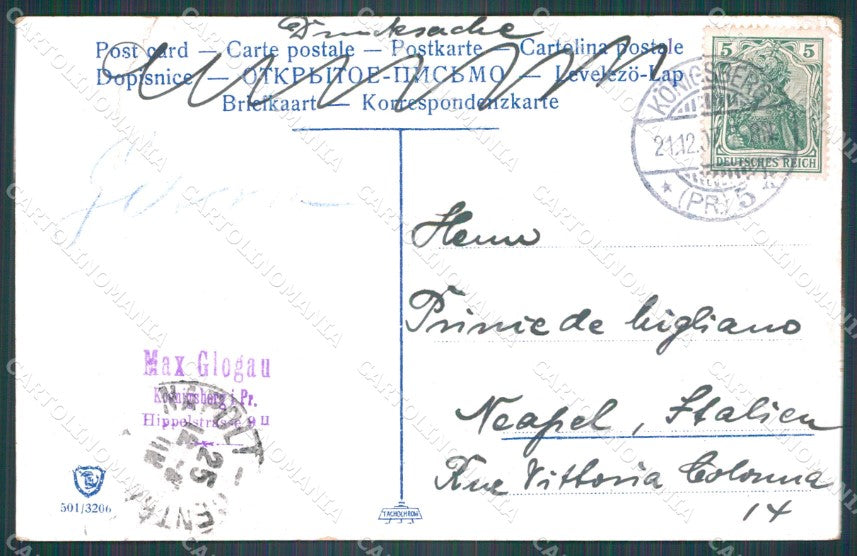 Drucksache
Post card — Carte postale — Postkarte — Cartolina postale
Dopisnice — ОТКРЫТОЕ-ПИСЬМО — Levelezö-Lap
Briefkaart — Korrespondenzkarte
5 5
DEUTSCHES REICH
KÖNIGSBERG
21.12.
(PR.) 5
Herrn
Prince de Migliano
Neapel, Italien
Rue Vittoria Colonna
14
Max Glogau
Königsberg i Pr.
Hippelstrasse 9 II
NAPOLI
25
501/3206
TACHOCHROM
CARTOLINOMANIA